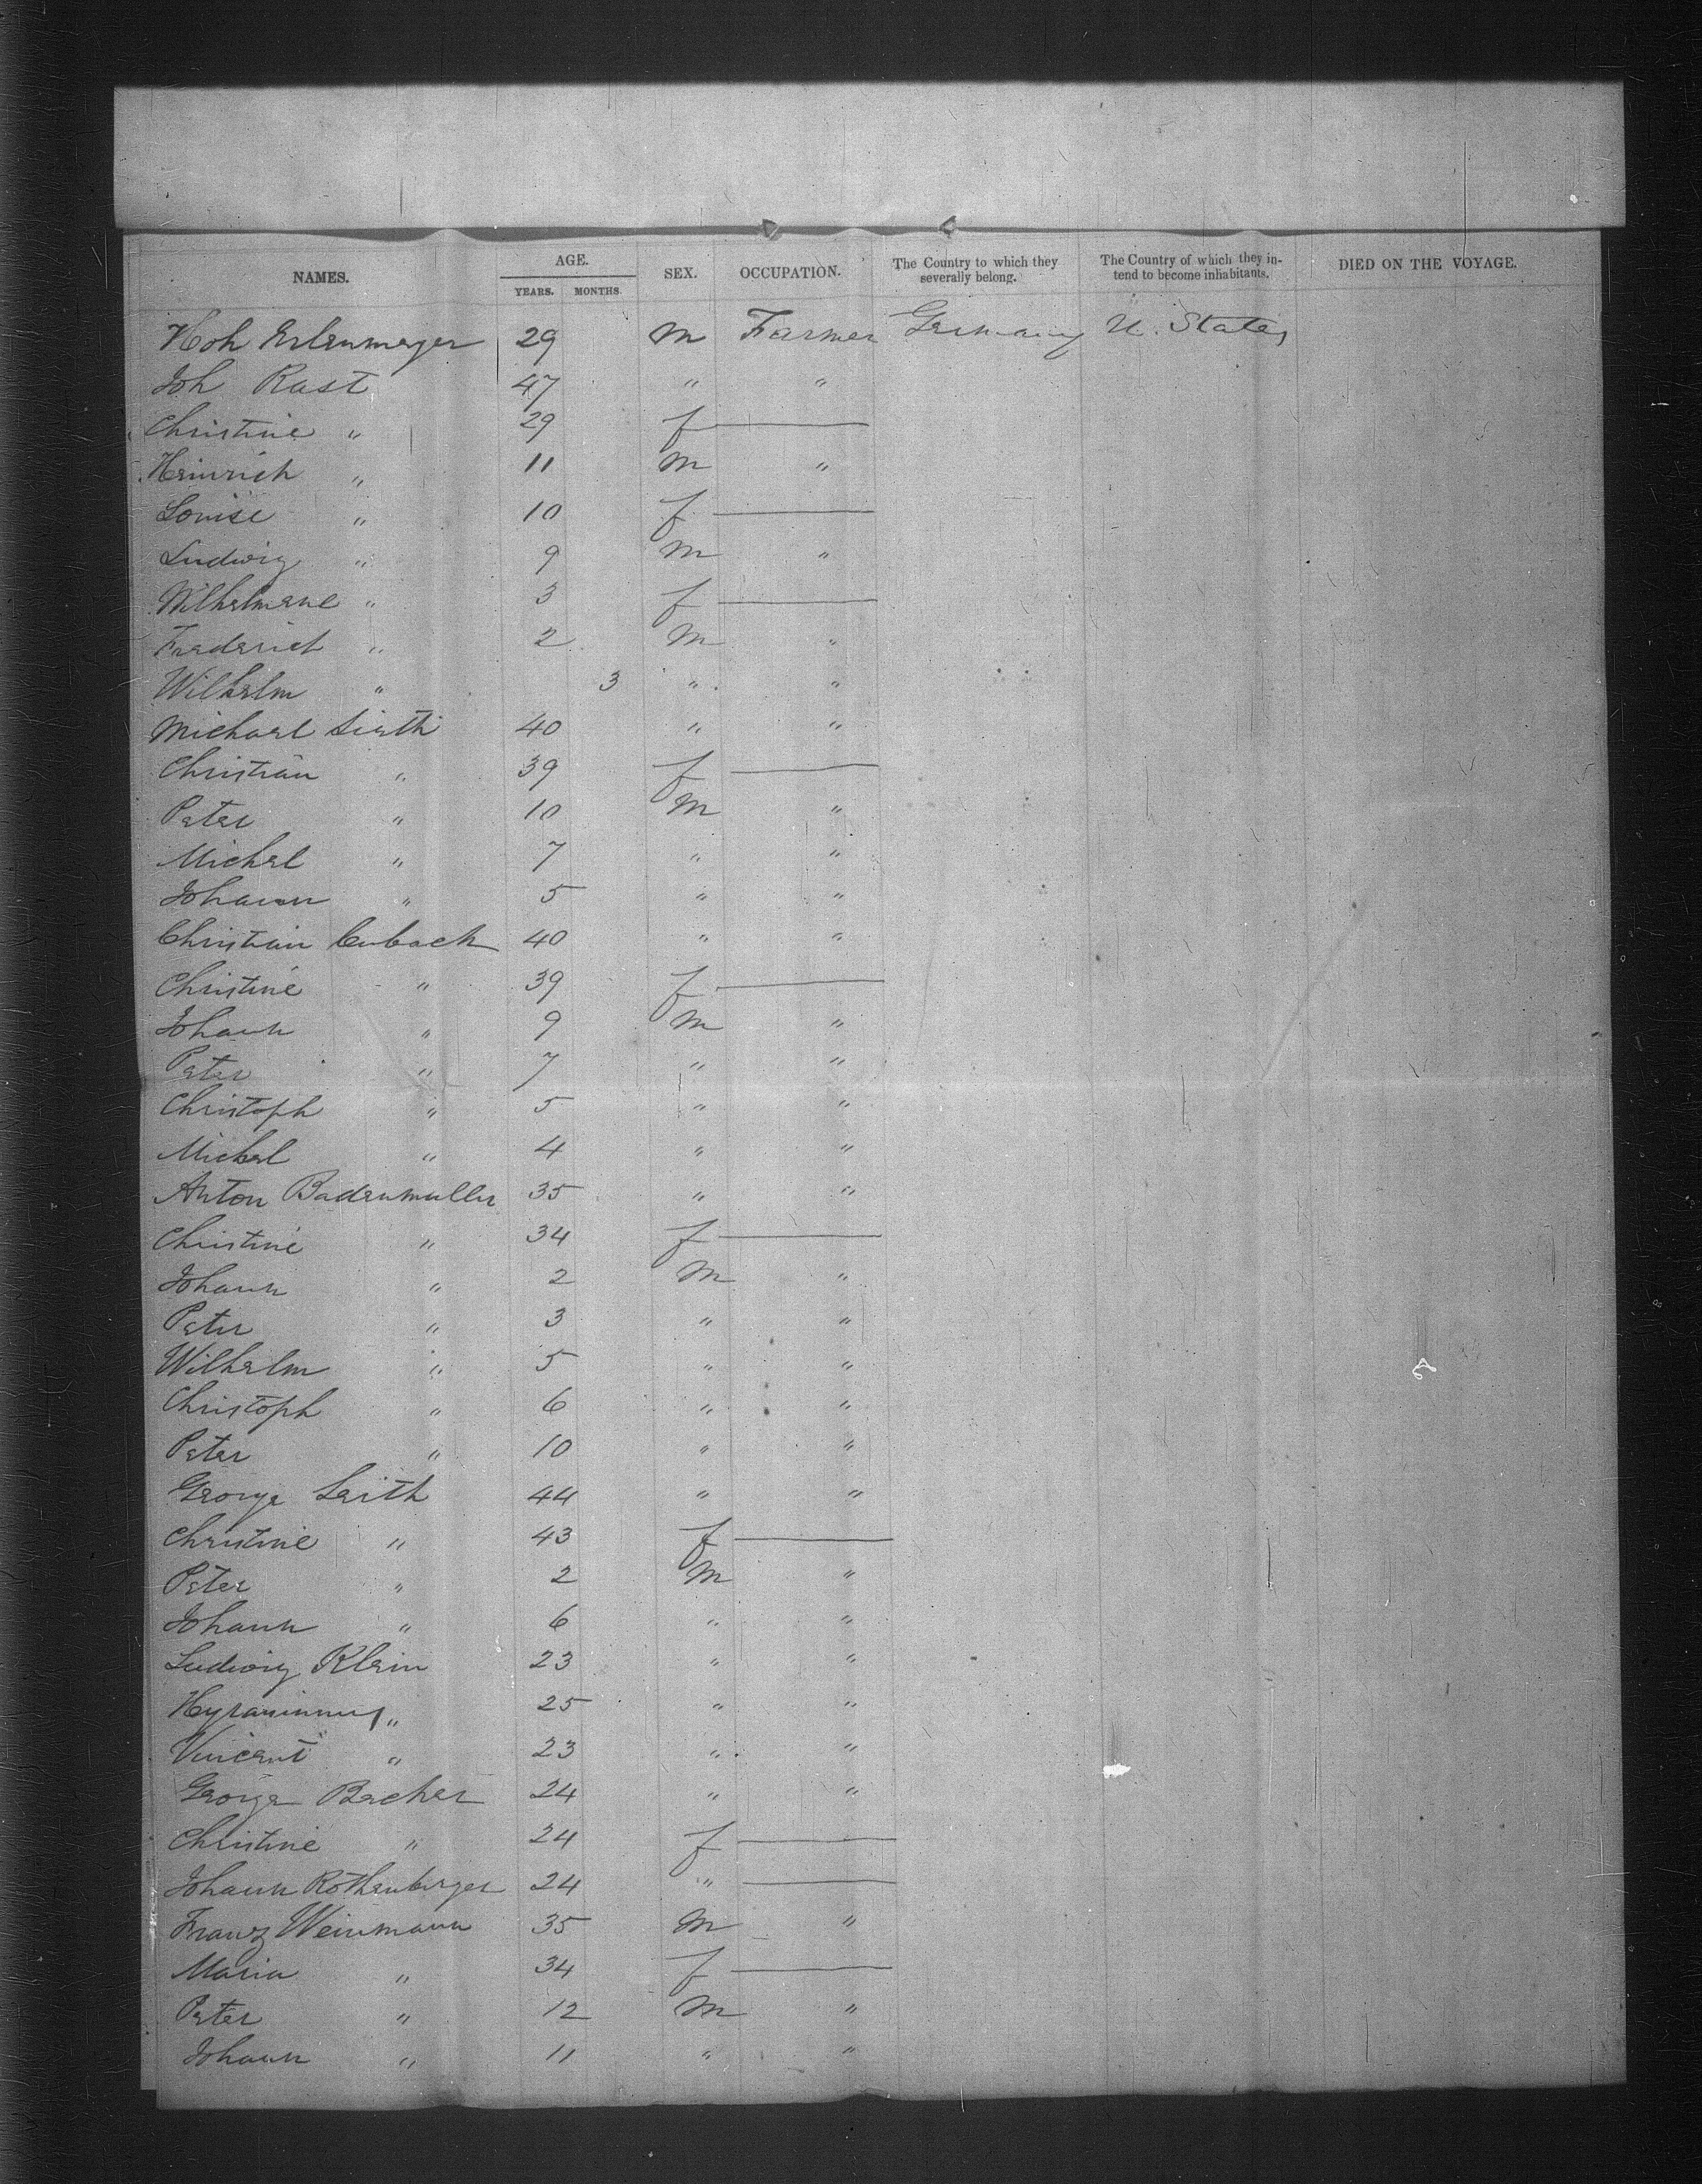 NAMES. AGE. YEARS. MONTHS. SEX. OCCUPATION. The Country to which they severally belong. The Country of which they intend to become inhabitants. DIED ON THE VOYAGE.
Hoh Erlenmeyer 29 m Farmer Germany U. States
Joh Rast 47 " "
Christine " 29 f —
Heinrich " 11 m "
Louise " 10 f —
Ludwig " 9 m "
Wilhelmene " 3 f —
Frederich " 2 m "
Wilhelm " 3 " "
Michael Sieth 40 " "
Christian " 39 f —
Peter " 10 m "
Michel " 7 " "
Johann " 5 " "
Christian 40 " "
Christine " 39 f —
Johann " 9 m "
Peter " 7 " "
Christoph " 5 " "
Michel " 4 " "
Anton Badenmuller 35 " "
Christine " 34 f —
Johann " 2 m "
Peter " 3 " "
Wilhelm " 5 " "
Christoph " 6 " "
Peter " 10 " "
George Leith 44 " "
Christine " 43 f —
Peter " 2 m "
Johann " 6 " "
Ludwig Klein 23 " "
Hyranimus " 25 " "
Vincent " 23 " "
George Becher 24 " "
Christine " 24 f —
Johann Rothenberger 24 " —
Franz Weinmann 35 m "
Maria " 34 f —
Peter " 12 m "
Johann " 11 " "